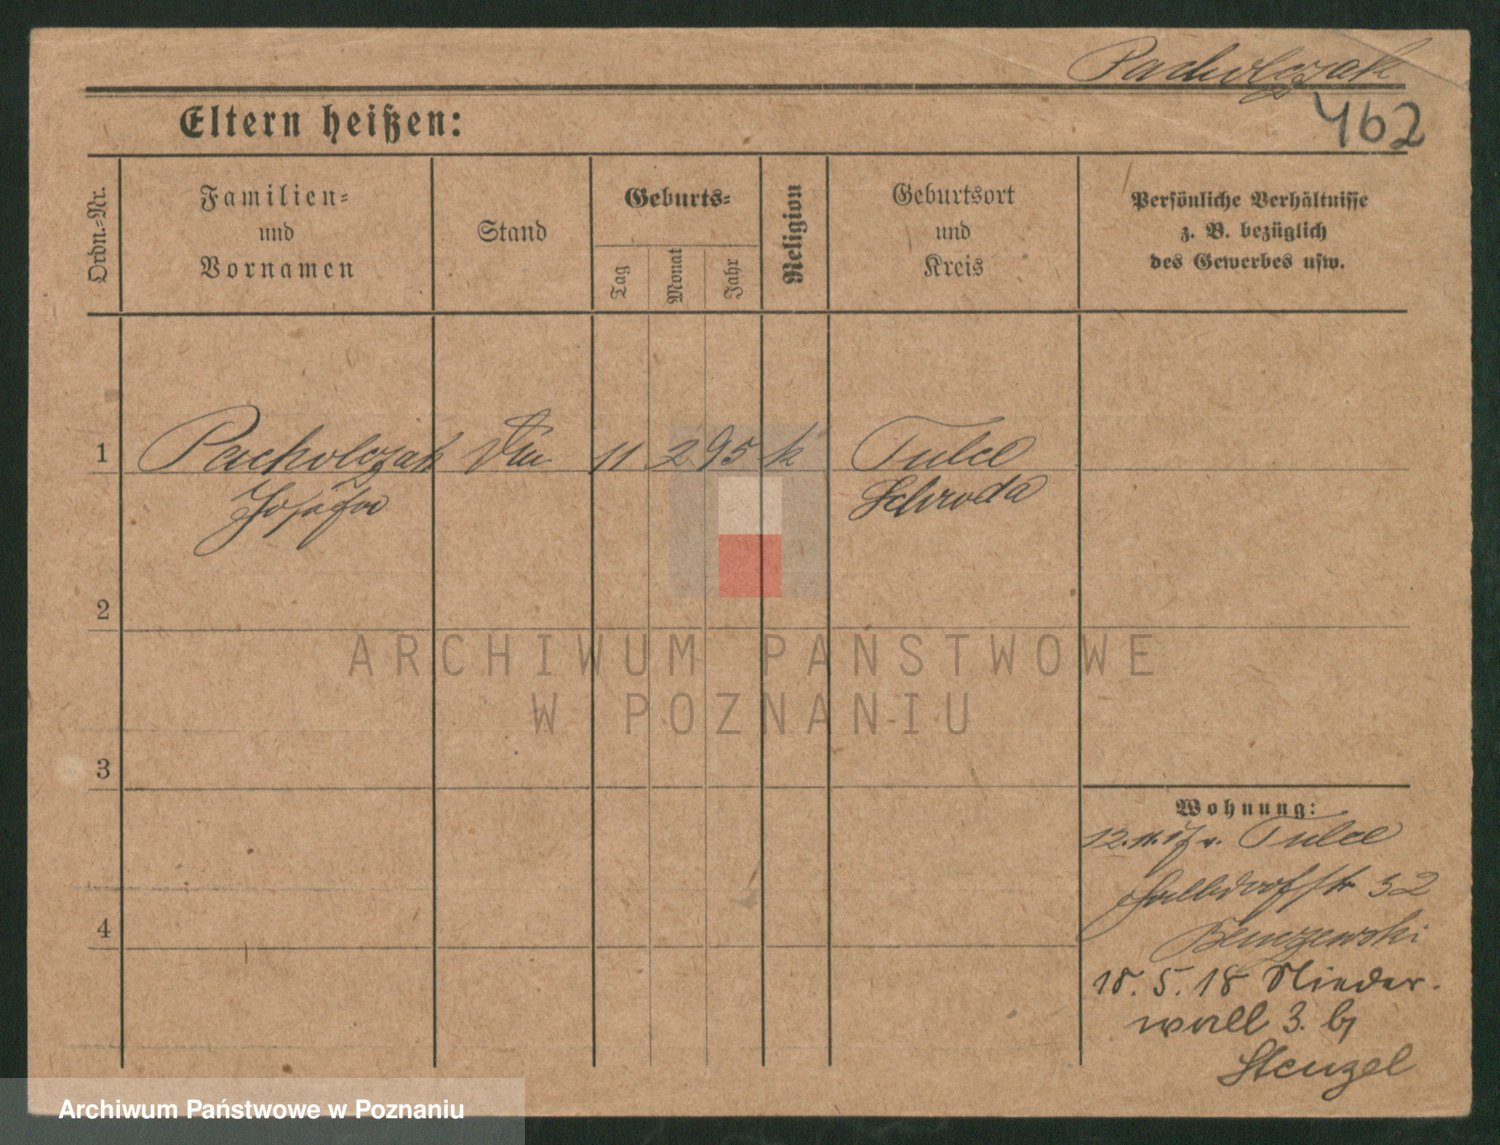 Pacholczak
462
Eltern heißen:
Ordn.-Nr.
Familien- und Vornamen
Stand
Geburts-
Tag
Monat
Jahr
Religion
Geburtsort und Kreis
Persönliche Verhältnisse
z. B. bezüglich
des Gewerbes usw.
1 Pacholczak 11 2 95 k Tulce
Josefa Schroda
2
ARCHIWUM PAŃSTWOWE
W POZNANIU
3
Wohnung:
12.11.17 v. Tulce
32
18.5.18 Nieder-
wall 3. by
Stenzel
4
Archiwum Państwowe w Poznaniu